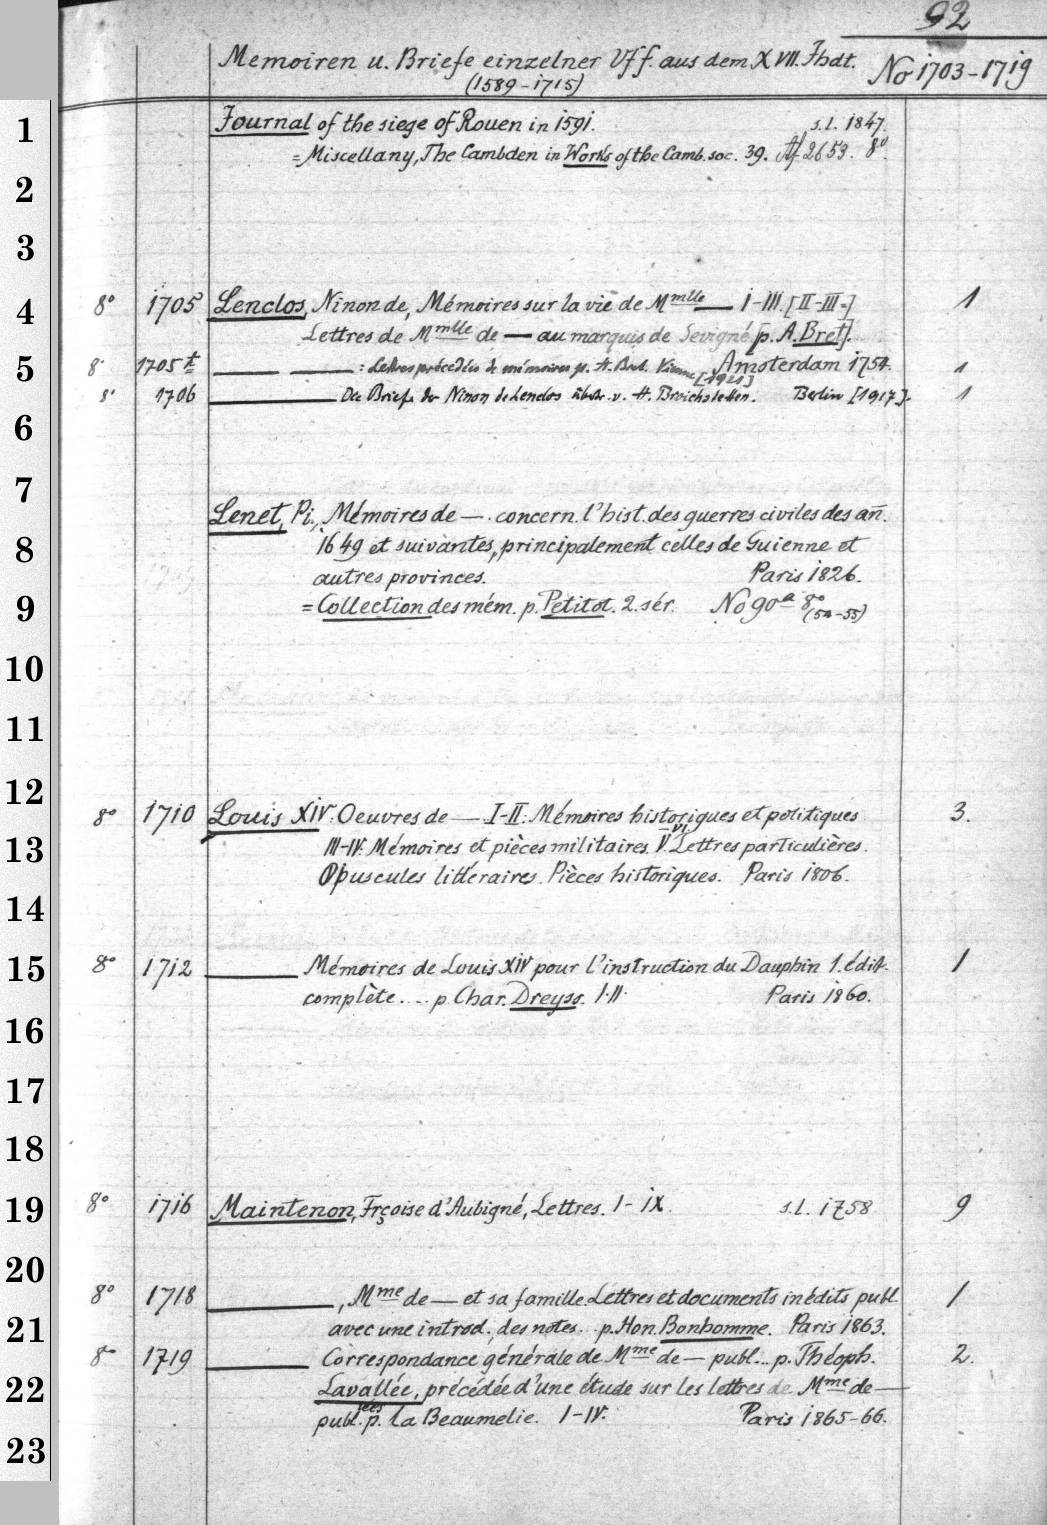 92
Memoiren u. Briefe einzelner Vff. aus dem XVII. Jhdt.
(1589-1715)
No 1703-1719
1 Journal of the siege of Rouen in 1591. s.l. 1847.
= Miscellany, The Cambden in Works of the Camb. soc. 39. Af 2653. 8°.
2
3
4 8° 1705 Lenclos, Ninon de, Mémoires sur la vie de Mmlle — I-III. [II-III=] 1
Lettres de Mmlle de — au marquis de Sevigné [p. A. Bret].
Amsterdam 1754.
5 8° 1705 t — — : Lettres précédées de mémoires p. A. Bret. Vienne [1921] 1
8° 1706 — Die Briefe der Ninon de Lenclos übstr. v. H. Broichstetten. Berlin [1917]. 1
6
7 Lenet, Pi., Mémoires de —. concern. l'hist. des guerres civiles des an̄.
8 1649 et suivantes, principalement celles de Guienne et
autres provinces. Paris 1826.
9 = Collection des mém. p. Petitot. 2. sér. No 90a 8°
(54-55)
10
11
12 8° 1710 Louis XIV. Oeuvres de — I-II: Mémoires historiques et politiques 3.
13 III-IV: Mémoires et pièces militaires. V-VI. Lettres particulières.
Opuscules littéraires. Pièces historiques. Paris 1806.
14
15 8° 1712 — Mémoires de Louis XIV pour l'instruction du Dauphin 1. édit. 1
complète.... p. Char. Dreyss. I-II. Paris 1860.
16
17
18
19 8° 1716 Maintenon, Frçoise d'Aubigné, Lettres. I-IX. s.l. 1758 9
20
8° 1718 —, Mme de — et sa famille. Lettres et documents inédits publ. 1
21 avec une introd., des notes.. p. Hon. Bonhomme. Paris 1863.
8° 1719 — Correspondance générale de Mme de — publ... p. Théoph. 2.
22 Lavallée, précédée d'une étude sur les lettres de Mme de —
publiées p. la Beaumelie. I-IV. Paris 1865-66.
23